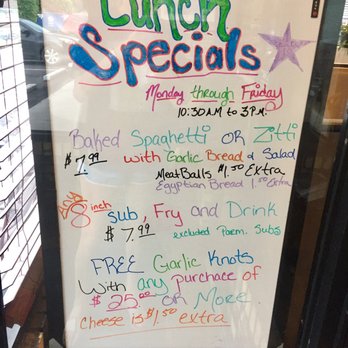 Lunch
Specials
Monday through Friday
10:30AM to 3PM.
Baked Spaghetti OR Zitti
$7.99 with Garlic Bread & Salad
MeatBalls $1.50 Extra
Egyptian Bread 1.50 Extra
Any 8 inch sub, Fry and Drink
$7.99 excluded Parm. Subs
FREE Garlic Knots
With any Purchace of
$25.00 OR More
Cheese is $1.50 extra